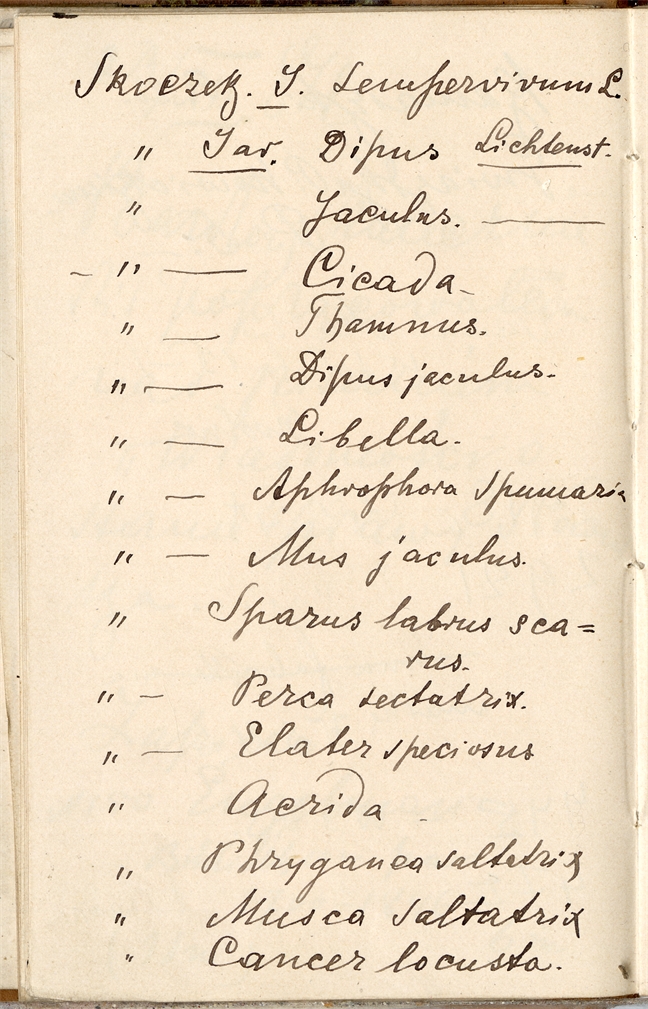 Skoczek. J. Sempervivum L.
" Jar. Dipus Lichtenst.
" Jaculus. —
– " — Cicada –
" — Thamnus.
" — Dipus jaculus.
" — Libella.
" — Aphrophora spumaria
" — Mus jaculus.
" Sparus labrus sca=
rus.
" — Perca sectatrix.
" — Elater speciosus
" Acrida
" Phryganea saltatrix
" Musca saltatrix
" Cancer locusta.